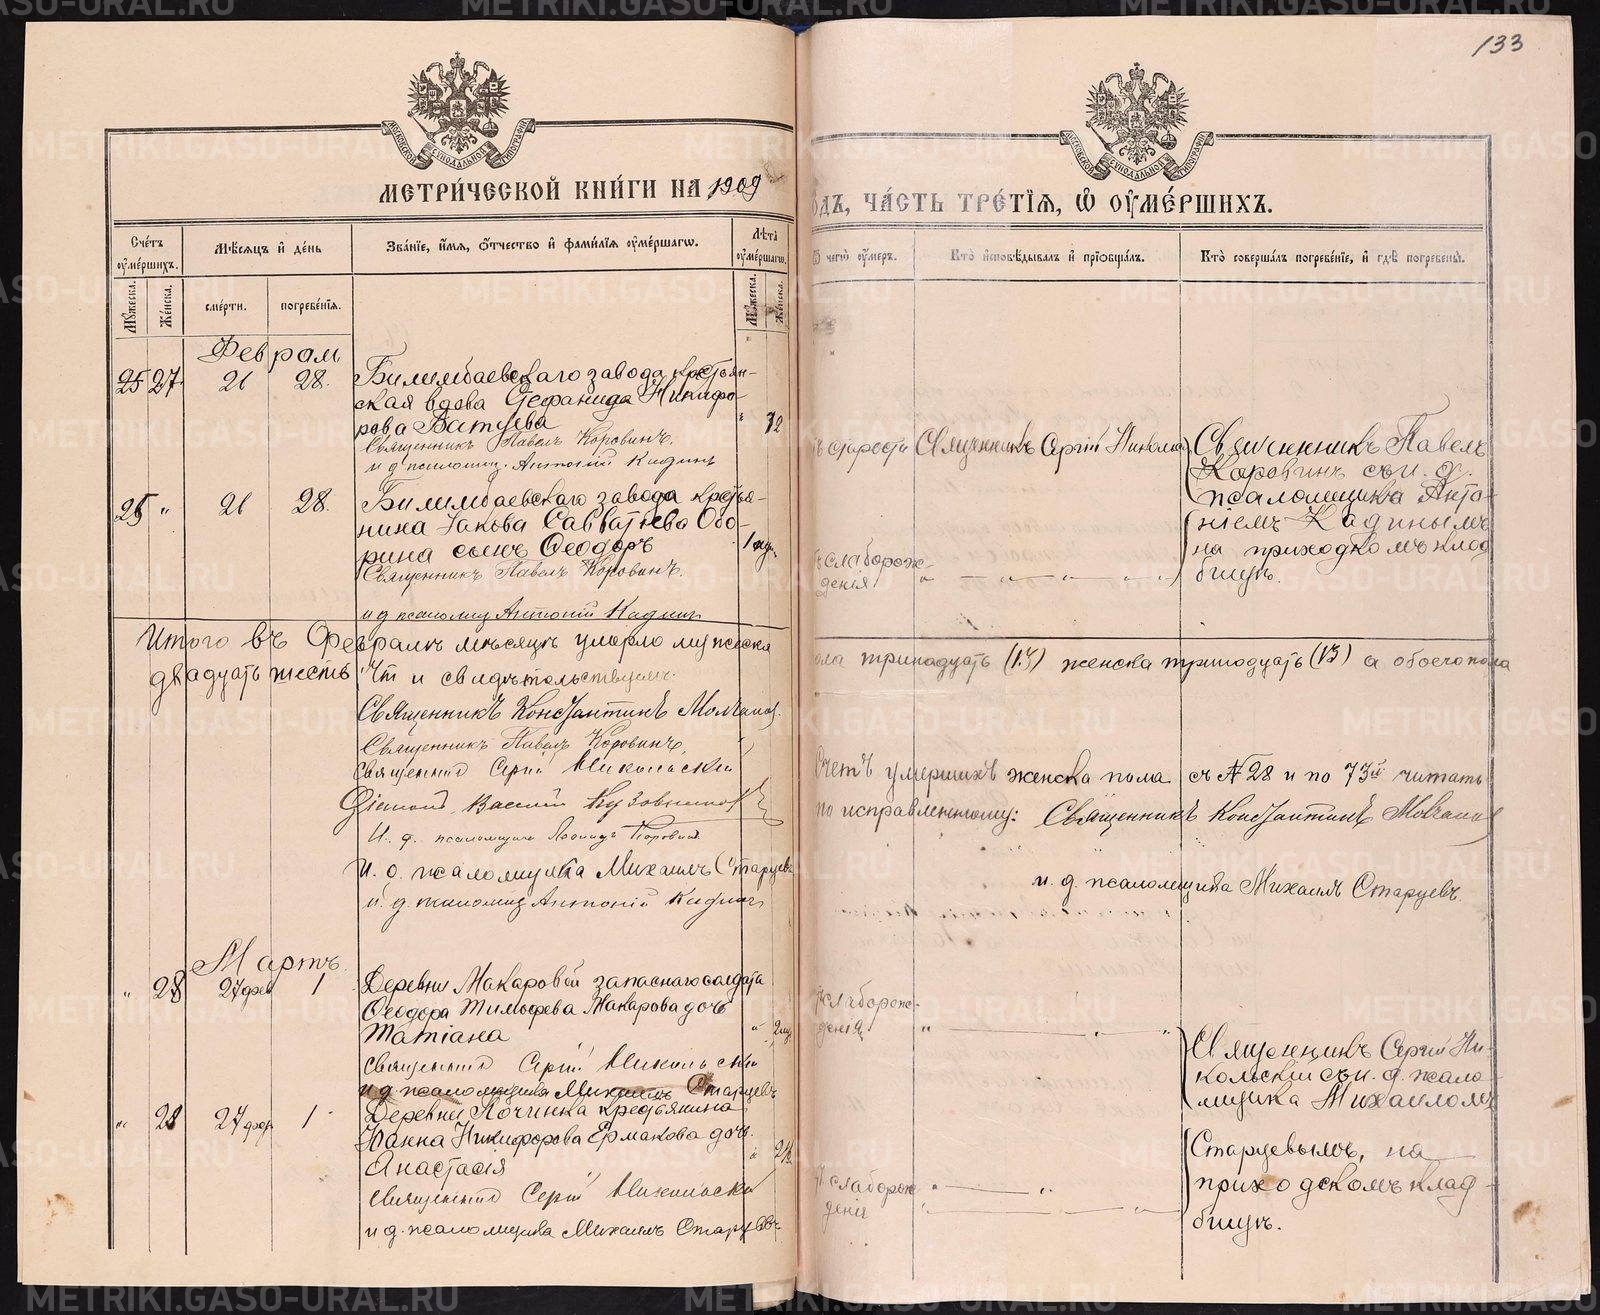 133
МОСКОВСКОЙ СѴНОДАЛЬНОЙ ТИПОГРАФІИ
МОСКОВСКОЙ СѴНОДАЛЬНОЙ ТИПОГРАФІИ
МЕТРИ́ЧЕСКОЙ КНИ́ГИ НА 1909
ОДЪ, ЧА́СТЬ ТРЕ́ТІЯ, Ѿ ОУМЕ́РШИХЪ.
Сче́тъ оуме́ршихъ.
Мѣсяцъ и де́нь
Зва́ніе, и́мя, о́тчество и фами́лія оуме́ршагѡ.
Лѣта оуме́ршагѡ.
чегѡ̀ оу́меръ.
Кто̀ исповѣдывалъ и пріобща́лъ.
Кто̀ соверша́лъ погребе́ніе, и гдѣ̀ погребены̀.
Мꙋжеска. Же́нска. сме́рти. погребе́нія. Мꙋжеска. Же́нска.
Февраль
25 27 21 28. Билимбаевскаго завода крестьян-
ская вдова Стефанида Никифо-
рова Ватуева " 72
Священникъ Павелъ Коровинъ.
и д псаломщ. Антоній Кадинъ
старости Священникъ Сергій Никола
Священникъ Павелъ
Коровинъ съ и. д.
псаломщика Анто-
ніемъ Кадинымъ
на приходскомъ клад
бищѣ.
26 " 21 28. Билимбаевскаго завода крестья-
нина Іакова Савватіева Обо-
рина сынъ Ѳеодоръ 1
Священникъ Павелъ Коровинъ.
и д псаломщ Антоній Кадинъ
слаборож-
денія " " " "
Итого въ Февралѣ мѣсяцѣ умерло мужеска
ола тринадцать (13) женска тринадцать (13) а обоего пола
двадцать шесть Что и свидѣтельствуемъ.
Священникъ Константинъ Молчанов
Священникъ Павелъ Коровинъ.
Священник Сергій Никольскій
Діаконъ Василій
И. д. псаломщика Леонидъ Коровинъ
И. д. псаломщика Михаилъ Старцевъ
и. д. псаломщ Антоній Кадинъ
Счетъ умершихъ женска пола съ № 28 и по 73й читать
по исправленному: Священникъ Константинъ Молчанов
и. д. псаломщика Михаилъ Старцевъ.
Мартъ
" 28 27 фев 1 Деревни Макаровой запаснаго солдата
Ѳеодора Тимофеева Макарова дочь
Татіана "
Священник Сергій Никольскій
и д псаломщика Михаилъ Старцевъ
слаборож-
денія " " "
Священникъ Сергій Ни-
кольскій съ и. д. псало-
мщика Михаиломъ
Старцевымъ, на
приходскомъ клад-
бищѣ.
" 28 27 фев. 1 Деревни Починка крестьянина
Іоанна Никифорова Ермакова дочь
Анастасія "
Священник Сергій Никольскій
и д. псаломщика Михаилъ Старцевъ
слаборож
денія " "
METRIKI.GASO-URAL.RU